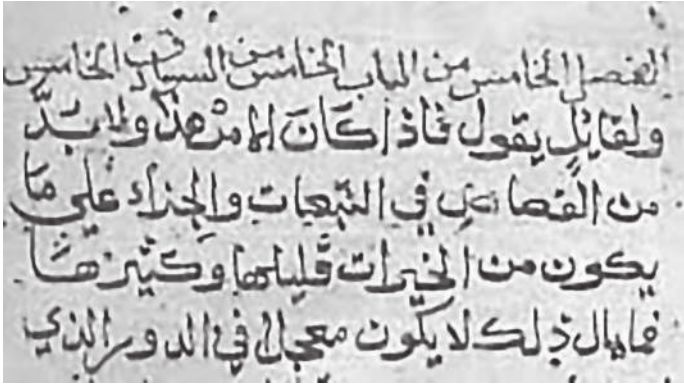 الفصل الخامس من الباب الخامس من السياق الخامس
ولقائل يقول فاذا كان الامر هذا ولا بد
من القصاص في التبعات والجزاء على ما
يكون من الخيرات قليلها وكثيرها
فما بال ذلك لا يكون معجلا في الدور الذي